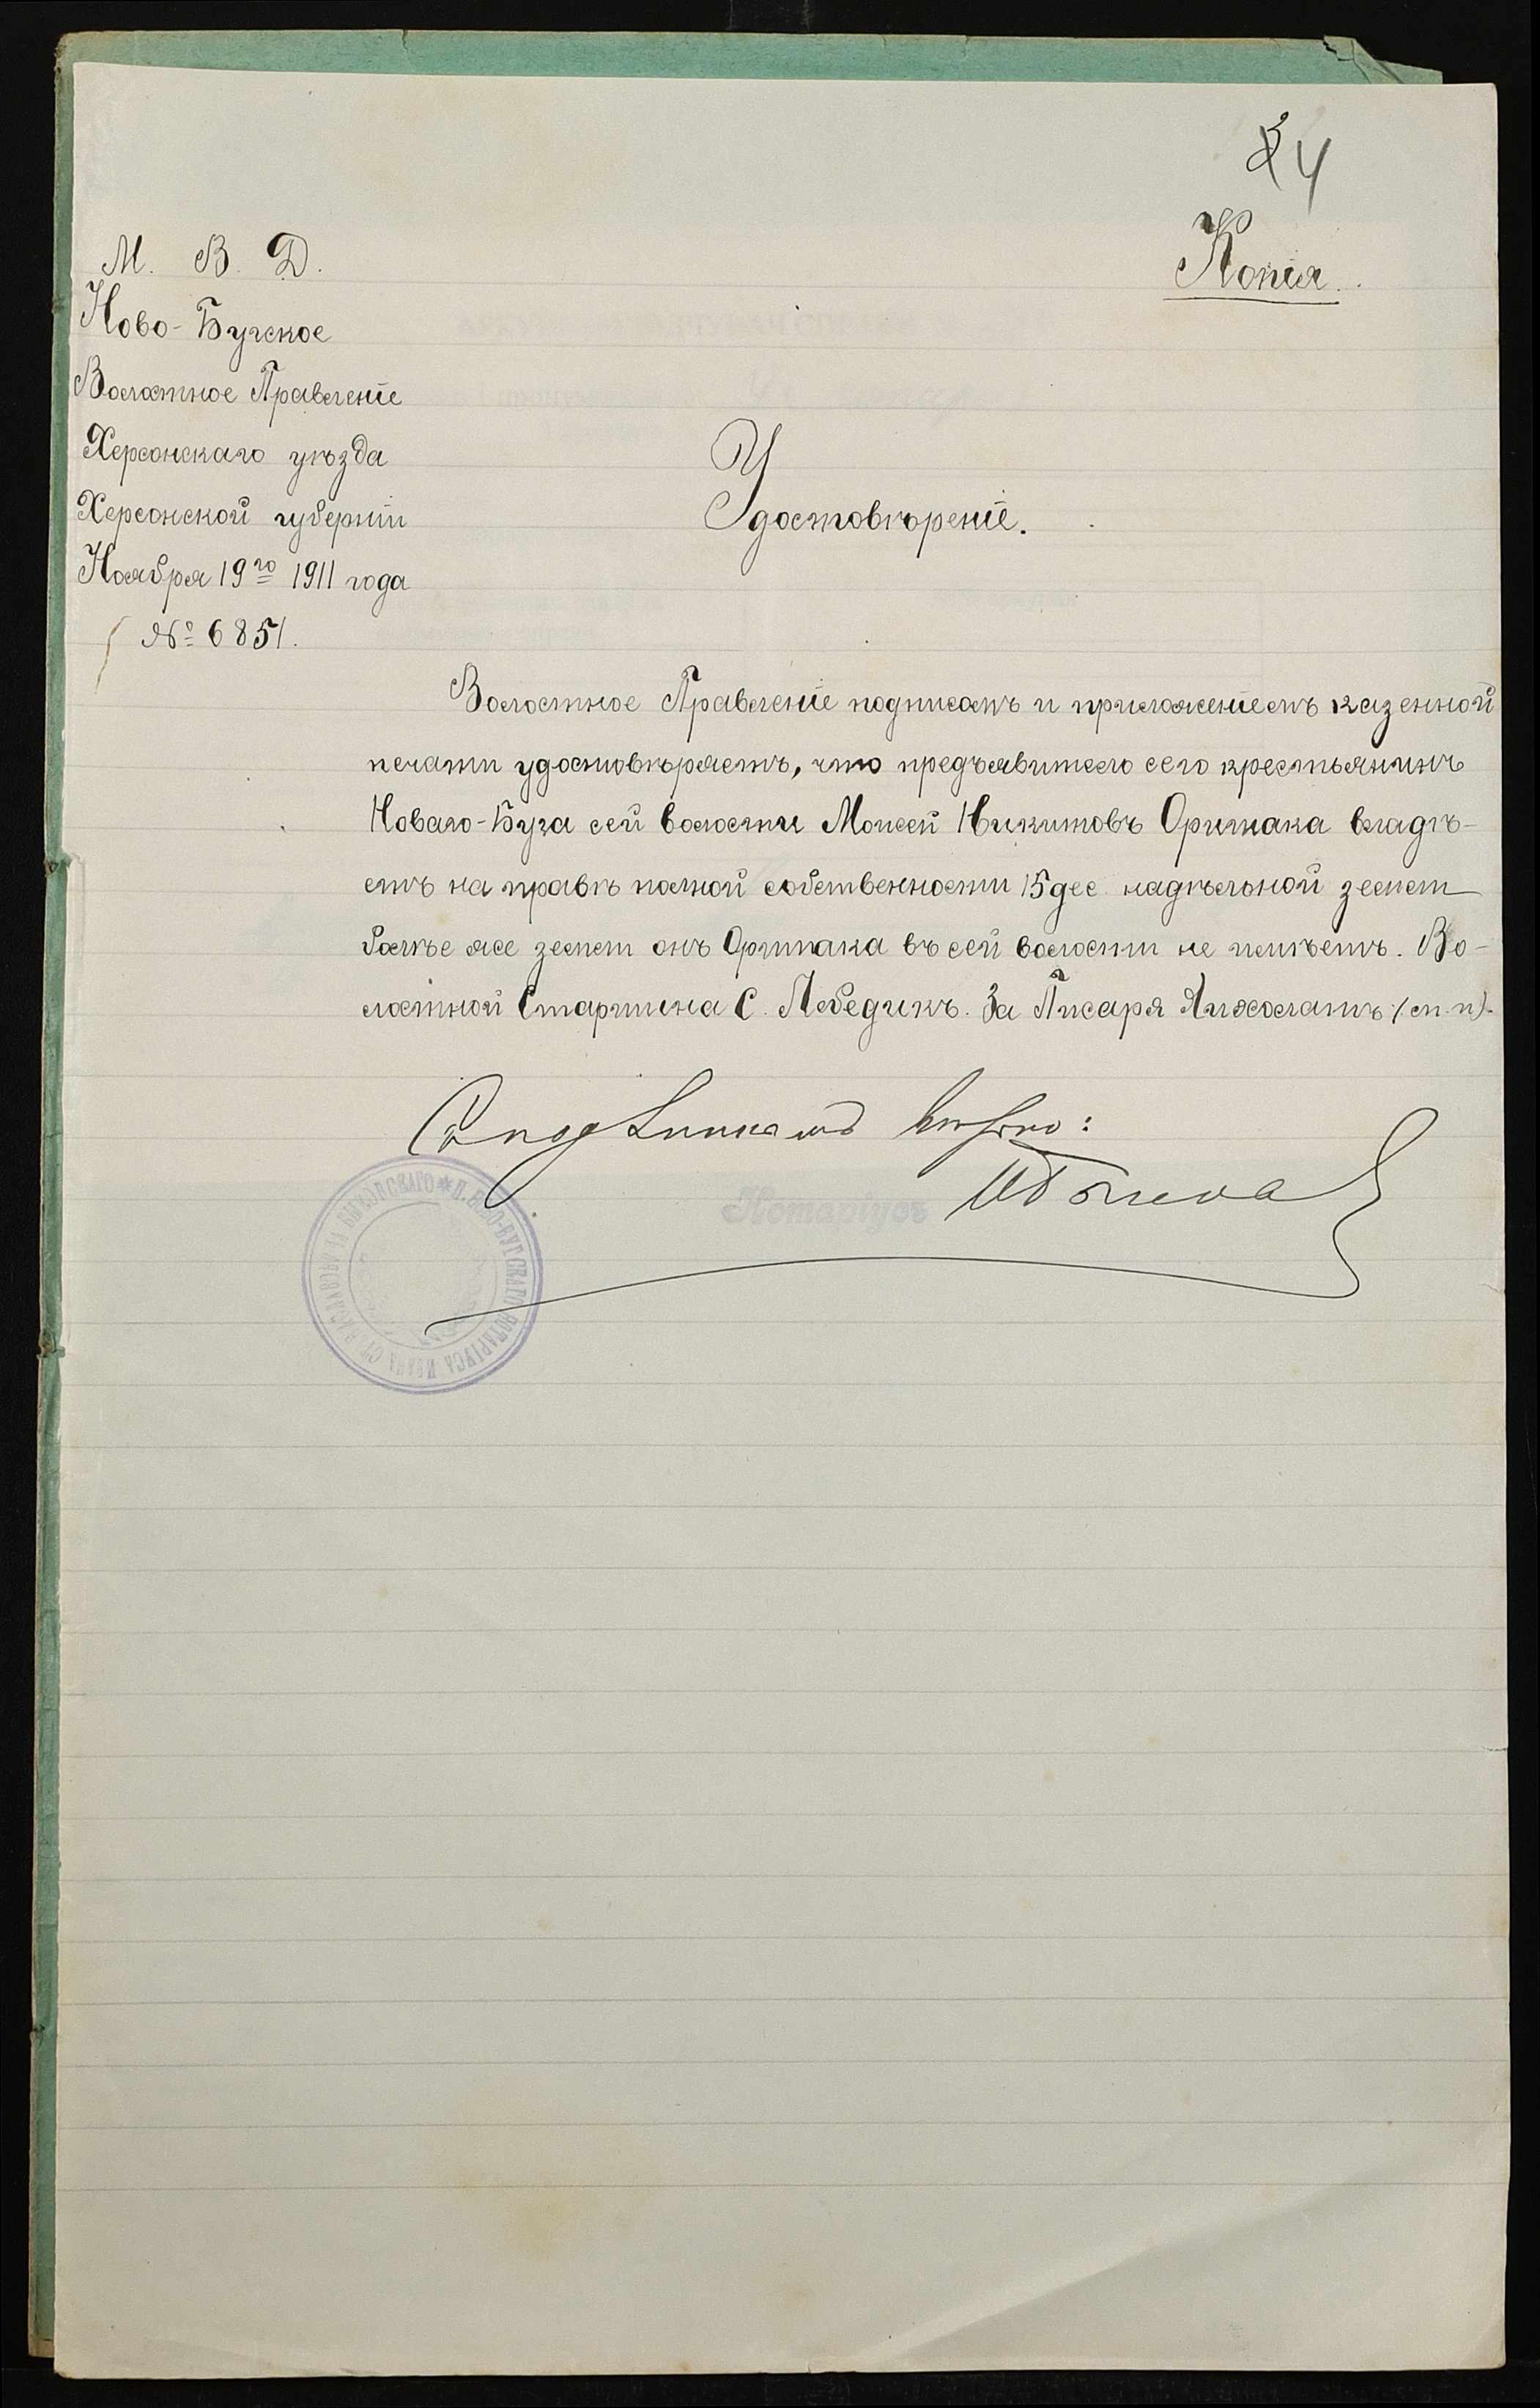 4
Копія.
М. В. Д.
Ново-Бугское
Волостное Правленіе
Херсонскаго уѣзда
Херсонской губерніи
Ноября 19го 1911 года
№ 6851.
Удостовѣреніе.
Волостное Правленіе подписомъ и приложеніемъ казенной
печати удостовѣряетъ, что предъявитель сего крестьянинъ
Новаго-Буга сей волости Моисей Никитовъ Оришака владѣ-
етъ на правѣ полной собственности 15 дес. надѣльной земли
болѣе же земли онъ Оришака въ сей волости не имѣетъ. Во-
лостной Старшина С. Лебедикъ. За Писаря (м.п.).
Съ подлиннымъ вѣрно:
Нотаріусъ